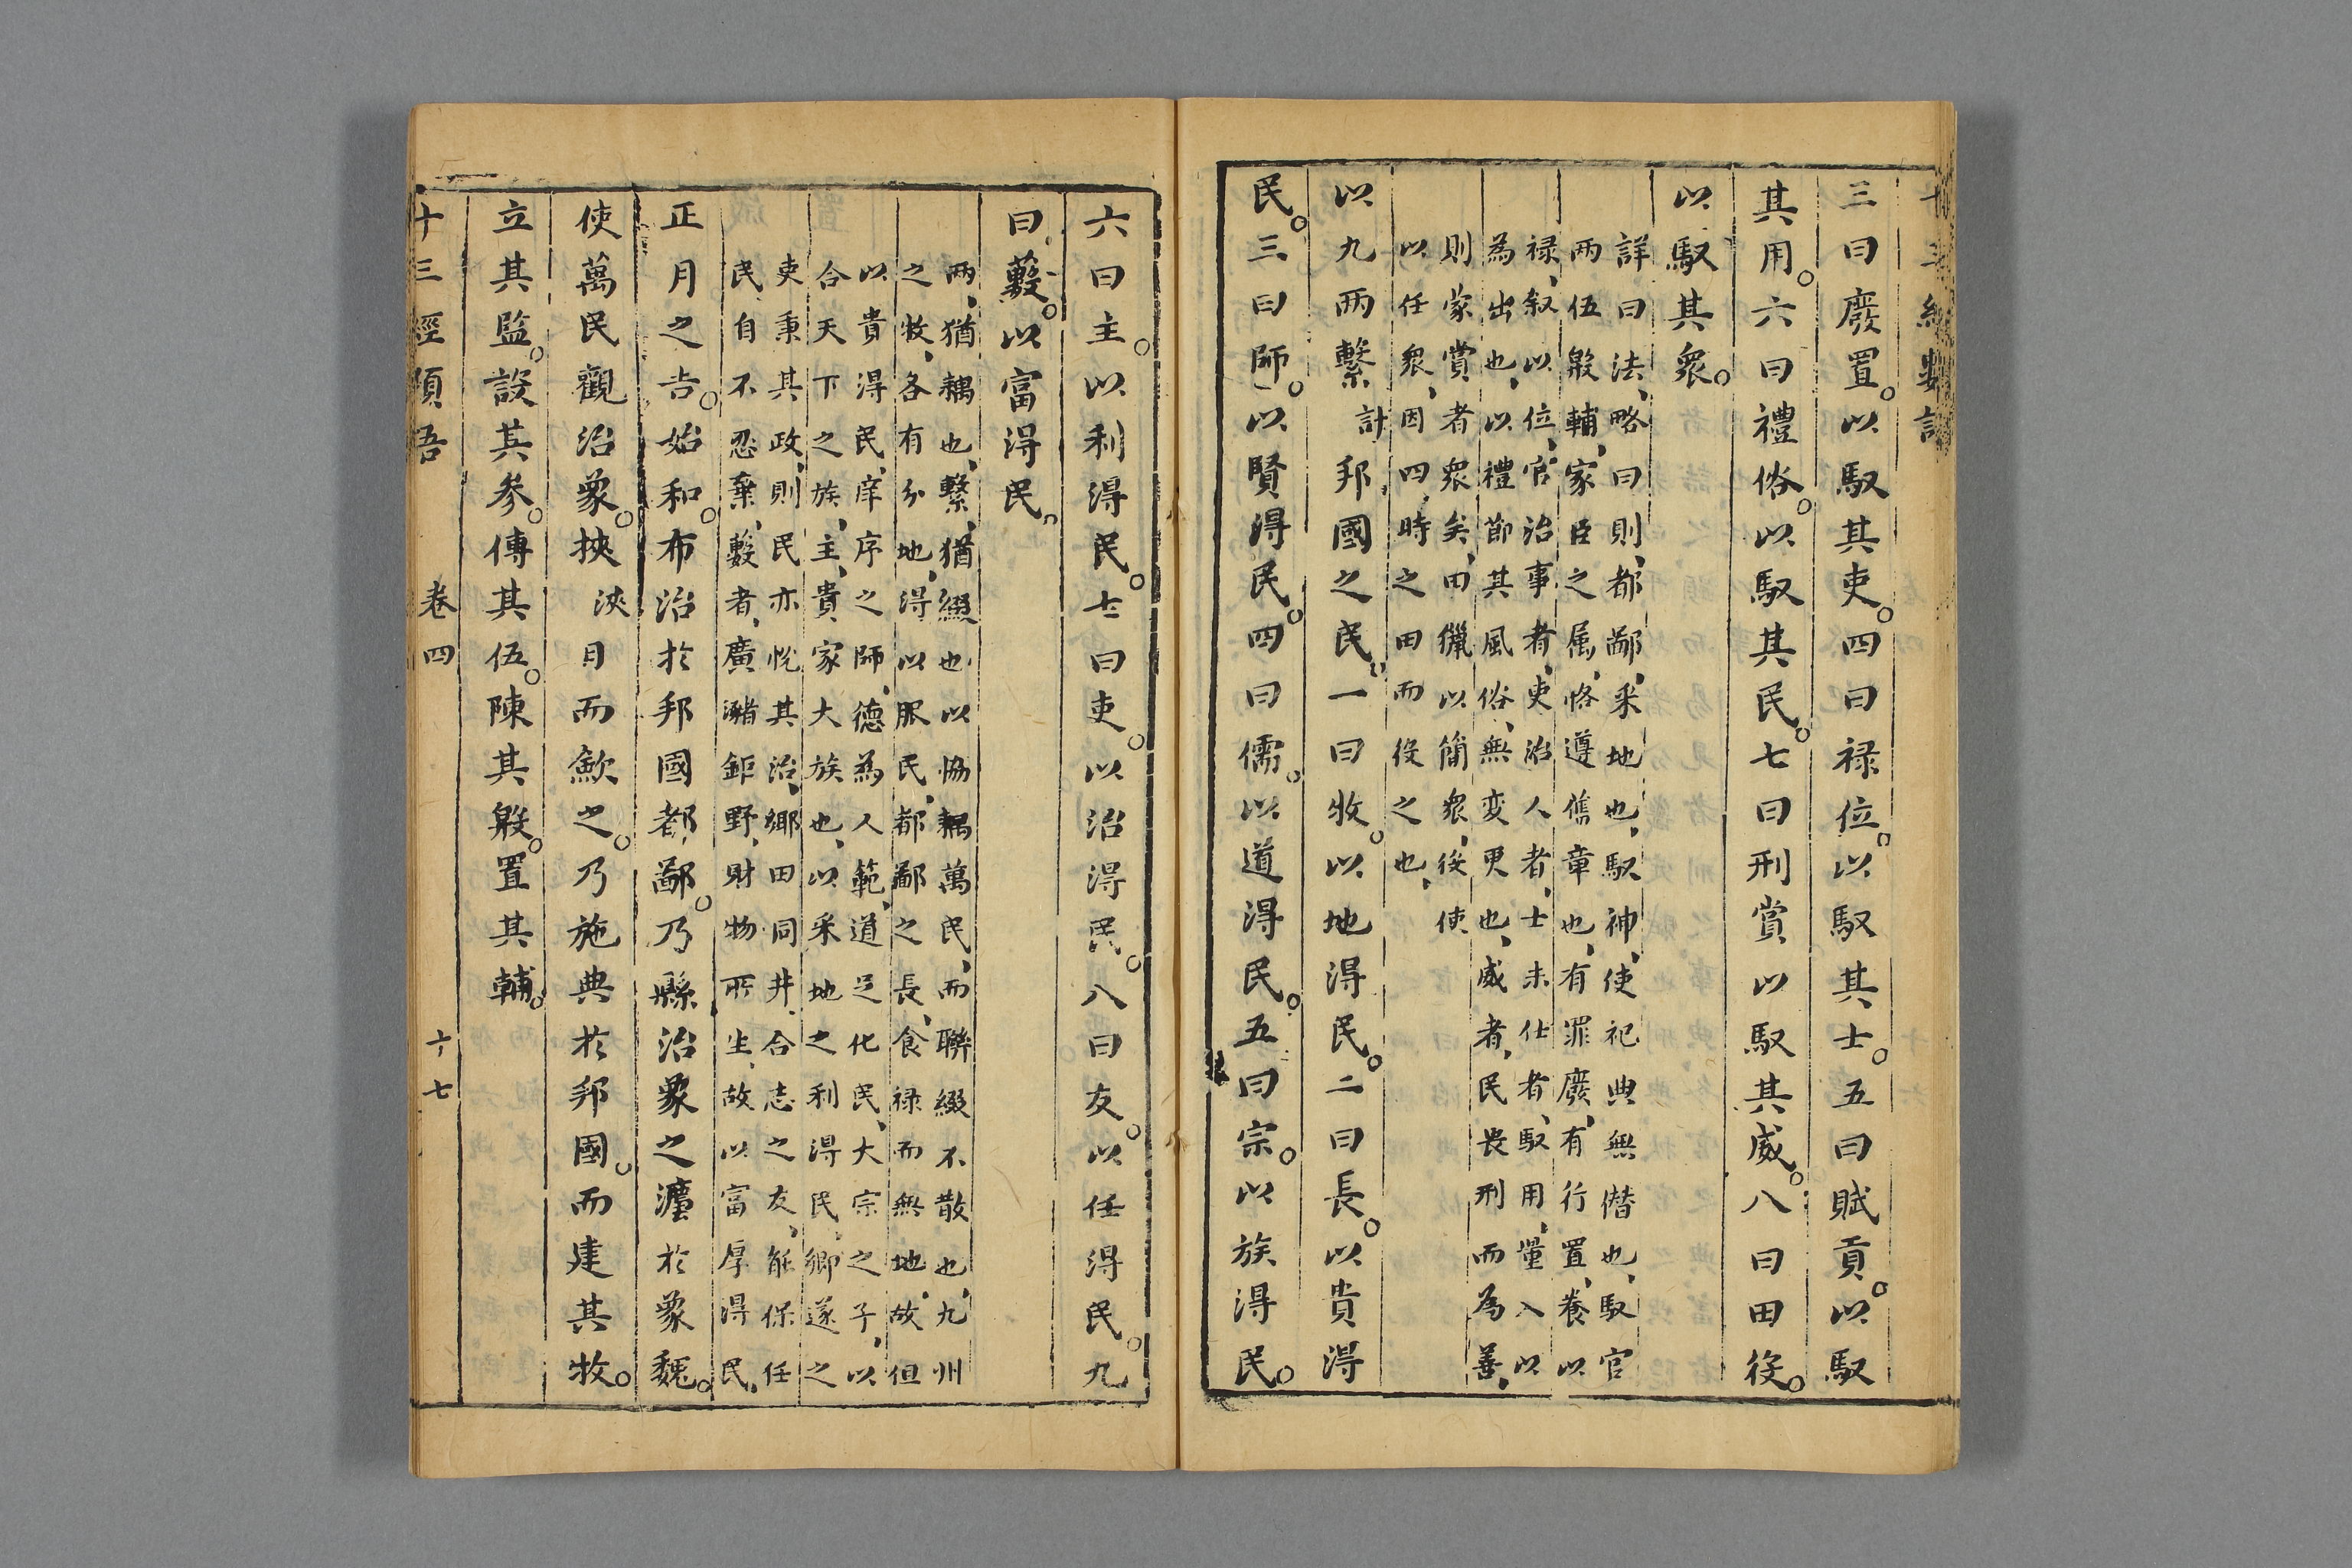 三曰廢置。以馭其吏。四曰禄位。以馭其士。五曰賦貢。以馭
其用。六曰禮俗。以馭其民。七曰刑賞以馭其威。八曰田役。
以馭其衆。
詳曰法、略曰則、都鄙、采地也、馭神、使祀典無僣也、馭官
两伍殷輔、家臣之属、恪遵舊章也、有罪廢、有行置、養以
禄、叙以位、官治事者、吏治人者、士未仕者、馭用、量入以
為出也、以禮節其風俗、無変更也、威者、民畏刑而為善、
則蒙賞者衆矣、田獵以簡衆、役使
以任衆、因四時之田而役之也、
以九两繫計邦國之民。一曰牧。以地得民。二曰長。以貴得
民。三曰師。以賢得民。四曰儒。以道得民。五曰宗。以族得民。
六曰主。以利得民。七曰吏。以治得民。八曰友。以任得民。九
曰藪。以富得民。
两、猶耦也、繫、猶綴也、以協耦萬民、而聯綴不散也、九州
之牧、各有分地、得以服民、都鄙之長、食禄而無地、故但
以貴得民、庠序之師、德為人範、道足化民、大宗之子、以
合天下之族、主、貴家大族也、以采地之利得民、鄉遂之
吏秉其政、則民亦悅其治、鄉田同井、合志之友、能保任
民自不忍棄、藪者、廣瀦鉅野、財物所生、故以富厚得民、
正月之吉。始和。布治於邦國都鄙。乃縣治象之灋於象魏。
使萬民觀治象。挾浹日而歛之。乃施典於邦國。而建其牧。
立其監。設其參。傅其伍。陳其殷。置其輔。
十三經類語
卷四
六七